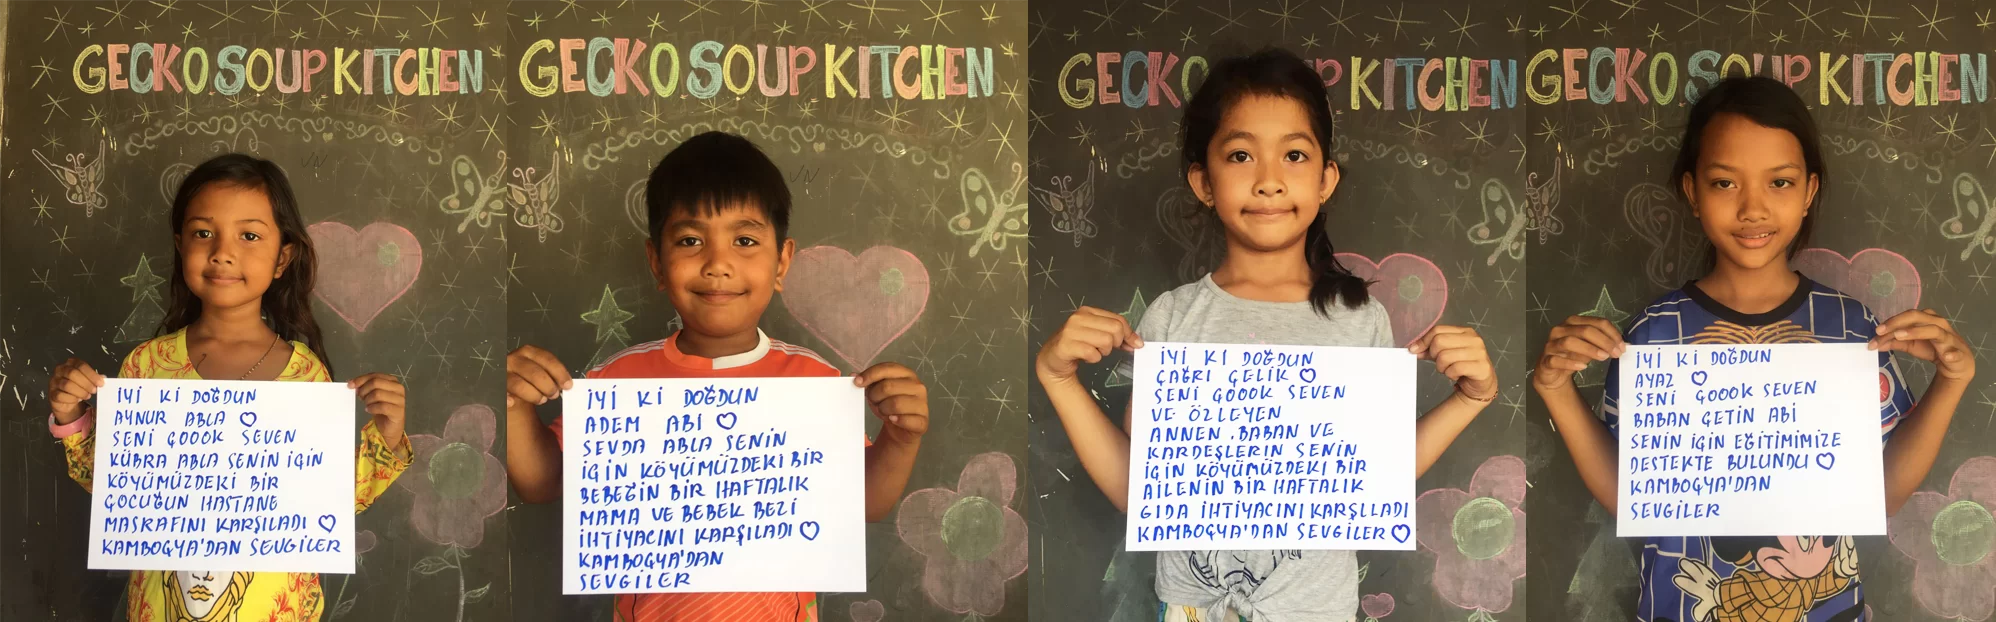 GECKO SOUP KITCHEN
İYİ Kİ DOĞDUN
AYNUR ABLA ♡
SENİ ÇOOOK SEVEN
KÜBRA ABLA SENİN İÇİN
KÖYÜMÜZDEKİ BİR
ÇOCUĞUN HASTANE
MASRAFINI KARŞILADI ♡
KAMBOÇYA'DAN SEVGİLER
GECKO SOUP KITCHEN
İYİ Kİ DOĞDUN
ADEM ABİ ♡
SEVDA ABLA SENİN
İÇİN KÖYÜMÜZDEKİ BİR
BEBEĞİN BİR HAFTALIK
MAMA VE BEBEK BEZİ
İHTİYACINI KARŞILADI ♡
KAMBOÇYA'DAN
SEVGİLER
GECKO SOUP KITCHEN
İYİ Kİ DOĞDUN
ÇAĞRI ÇELİK ♡
SENİ ÇOOOK SEVEN
VE ÖZLEYEN
ANNEN, BABAN VE
KARDEŞLERİN SENİN
İÇİN KÖYÜMÜZDEKİ BİR
AİLENİN BİR HAFTALIK
GIDA İHTİYACINI KARŞILADI
KAMBOÇYA'DAN SEVGİLER ♡
GECKO SOUP KITCHEN
İYİ Kİ DOĞDUN
AYAZ ♡
SENİ ÇOOOK SEVEN
BABAN ÇETİN ABİ
SENİN İÇİN EĞİTİMİMİZE
DESTEKTE BULUNDU ♡
KAMBOÇYA'DAN
SEVGİLER